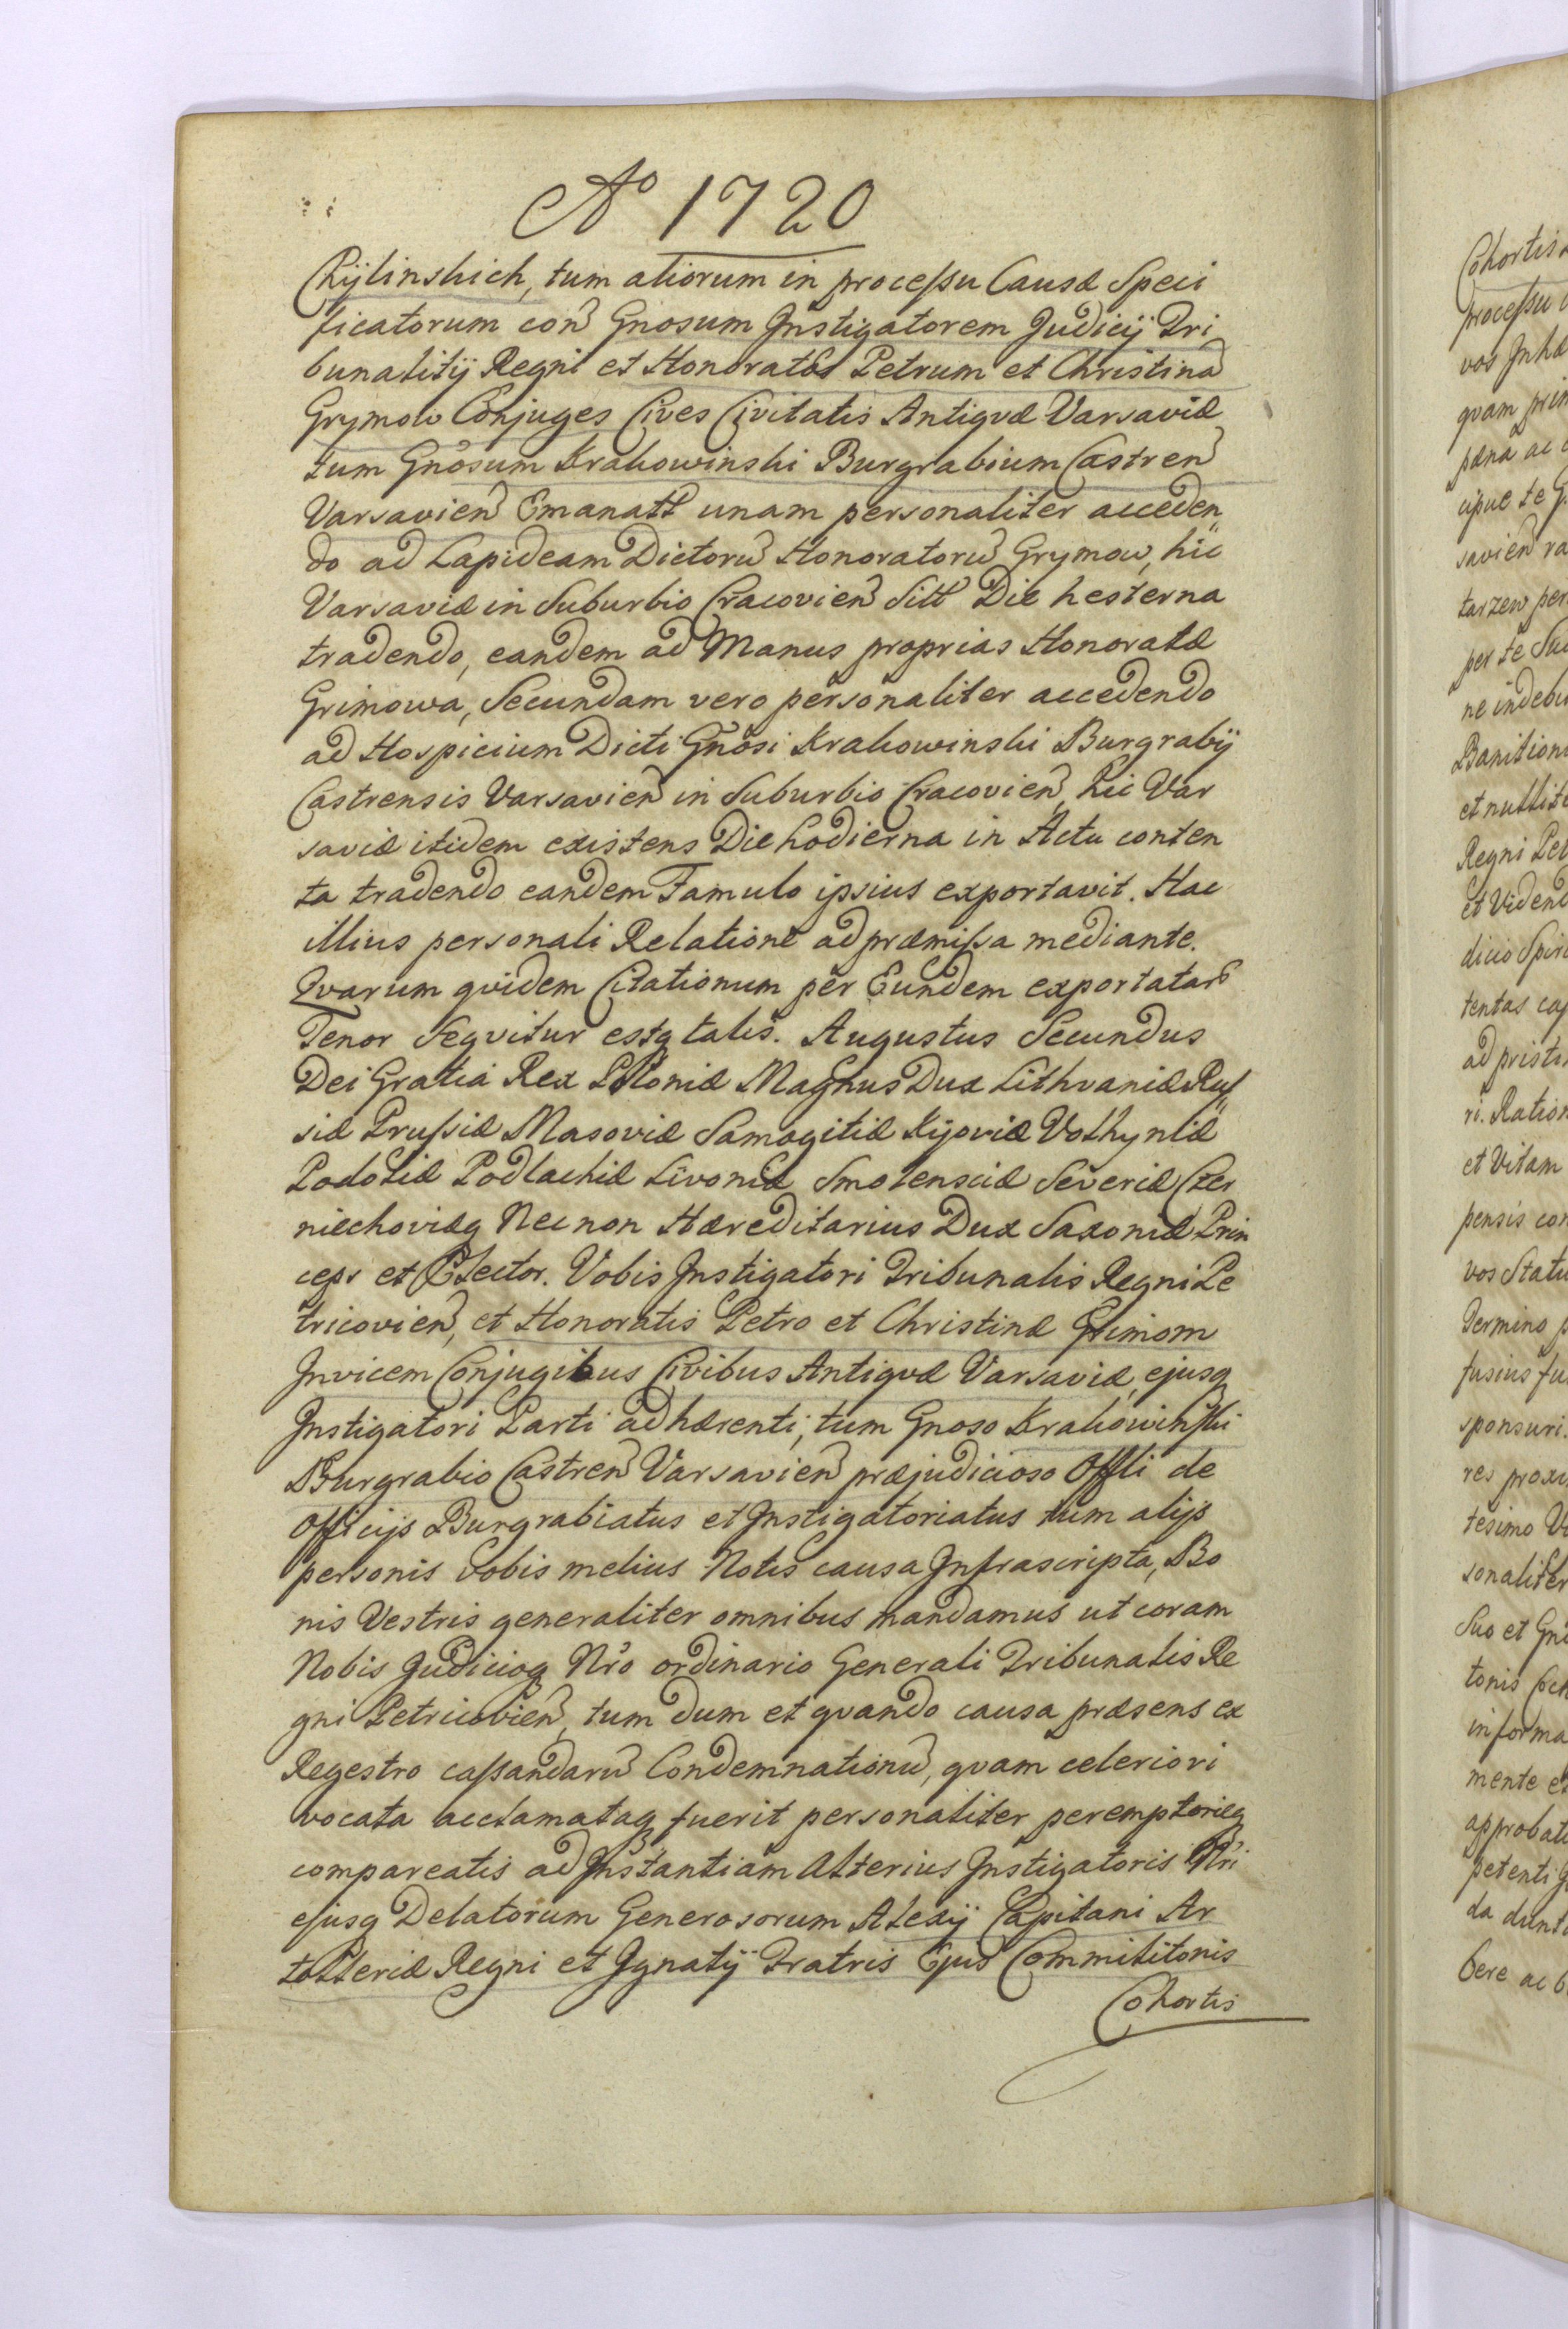 Aº 1720
Chylinskich, tum aliorum in processu Causæ Speci
ficatorum con Gnosum Instigatorem Judicij Tri
bunalitij Regni et Honoratos Petrum et Christina
Grymow Conjuges Cives Civitatis Antiqvæ Varsaviæ
tum Gnosum Krakowinski Burgrabium Castren
Varsavien Emanatt unam personaliter acceden
do ad Lapideam Dictoru Honoratoru Grymow, hic
Varsaviæ in Suburbio Cracovien Sitt Die hesterna
tradendo, eandem ad Manus proprias Honoratæ
Grimowa, Secundam vero personaliter accedendo
ad Hospicium Dicti Gnosi Krakowinski Burgrabij
Castrensis Varsavien in Suburbio Cracovien, hic Var
saviæ itidem existens Die hodierna in Actu conten
ta tradendo eandem Famulo ipsius exportavit. Hac
illius personali Relatione ad præmissa mediante.
Qvarum qvidem Citationum per Eundem exportatar
Tenor Seqvitur estq talis. Augustus Secundus
Dei Gratia Rex Poloniæ Magnus Dux Lithvaniæ Rus
siæ Prussiæ Masoviæ Samogitiæ Kijoviæ Volhyniæ
Podoliæ Podlachiæ Livoniæ Smolensciæ Severiæ Czer
niechoviæq Necnon Hæreditarius Dux Saxoniæ Prin
ceps et Elector. Vobis Instigatori Tribunalis Regni Pe
tricovien, et Honoratis Petro et Christinæ Grimom
Invicem Conjugibus Civibus Antiqvæ Varsaviæ, ejusq
Instigatori Parti adhærenti, tum Gnoso Krakowinski
Burgrabio Castren Varsavien præjudicioso Offli de
Officijs Burgrabiatus et Instigatoriatus tum alijs
personis Vobis melius Notis causa Infrascripta, Bo
nis Vestris generaliter omnibus mandamus ut coram
Nobis Judicioq Nro ordinario Generali Tribunalis Re
gni Petricovien, tum dum et qvando causa præsens ex
Regestro cassandaru Condemnationu, qvam celeriori
vocata acclamataq fuerit personaliter peremptorieq
compareatis ad Instantiam Alterius Instigatoris Nri
ejusq Delatorum Generosorum Alexij Capitani Ar
tolleriæ Regni et Ignatij Fratris Ejus Commilitonis
Cohortis